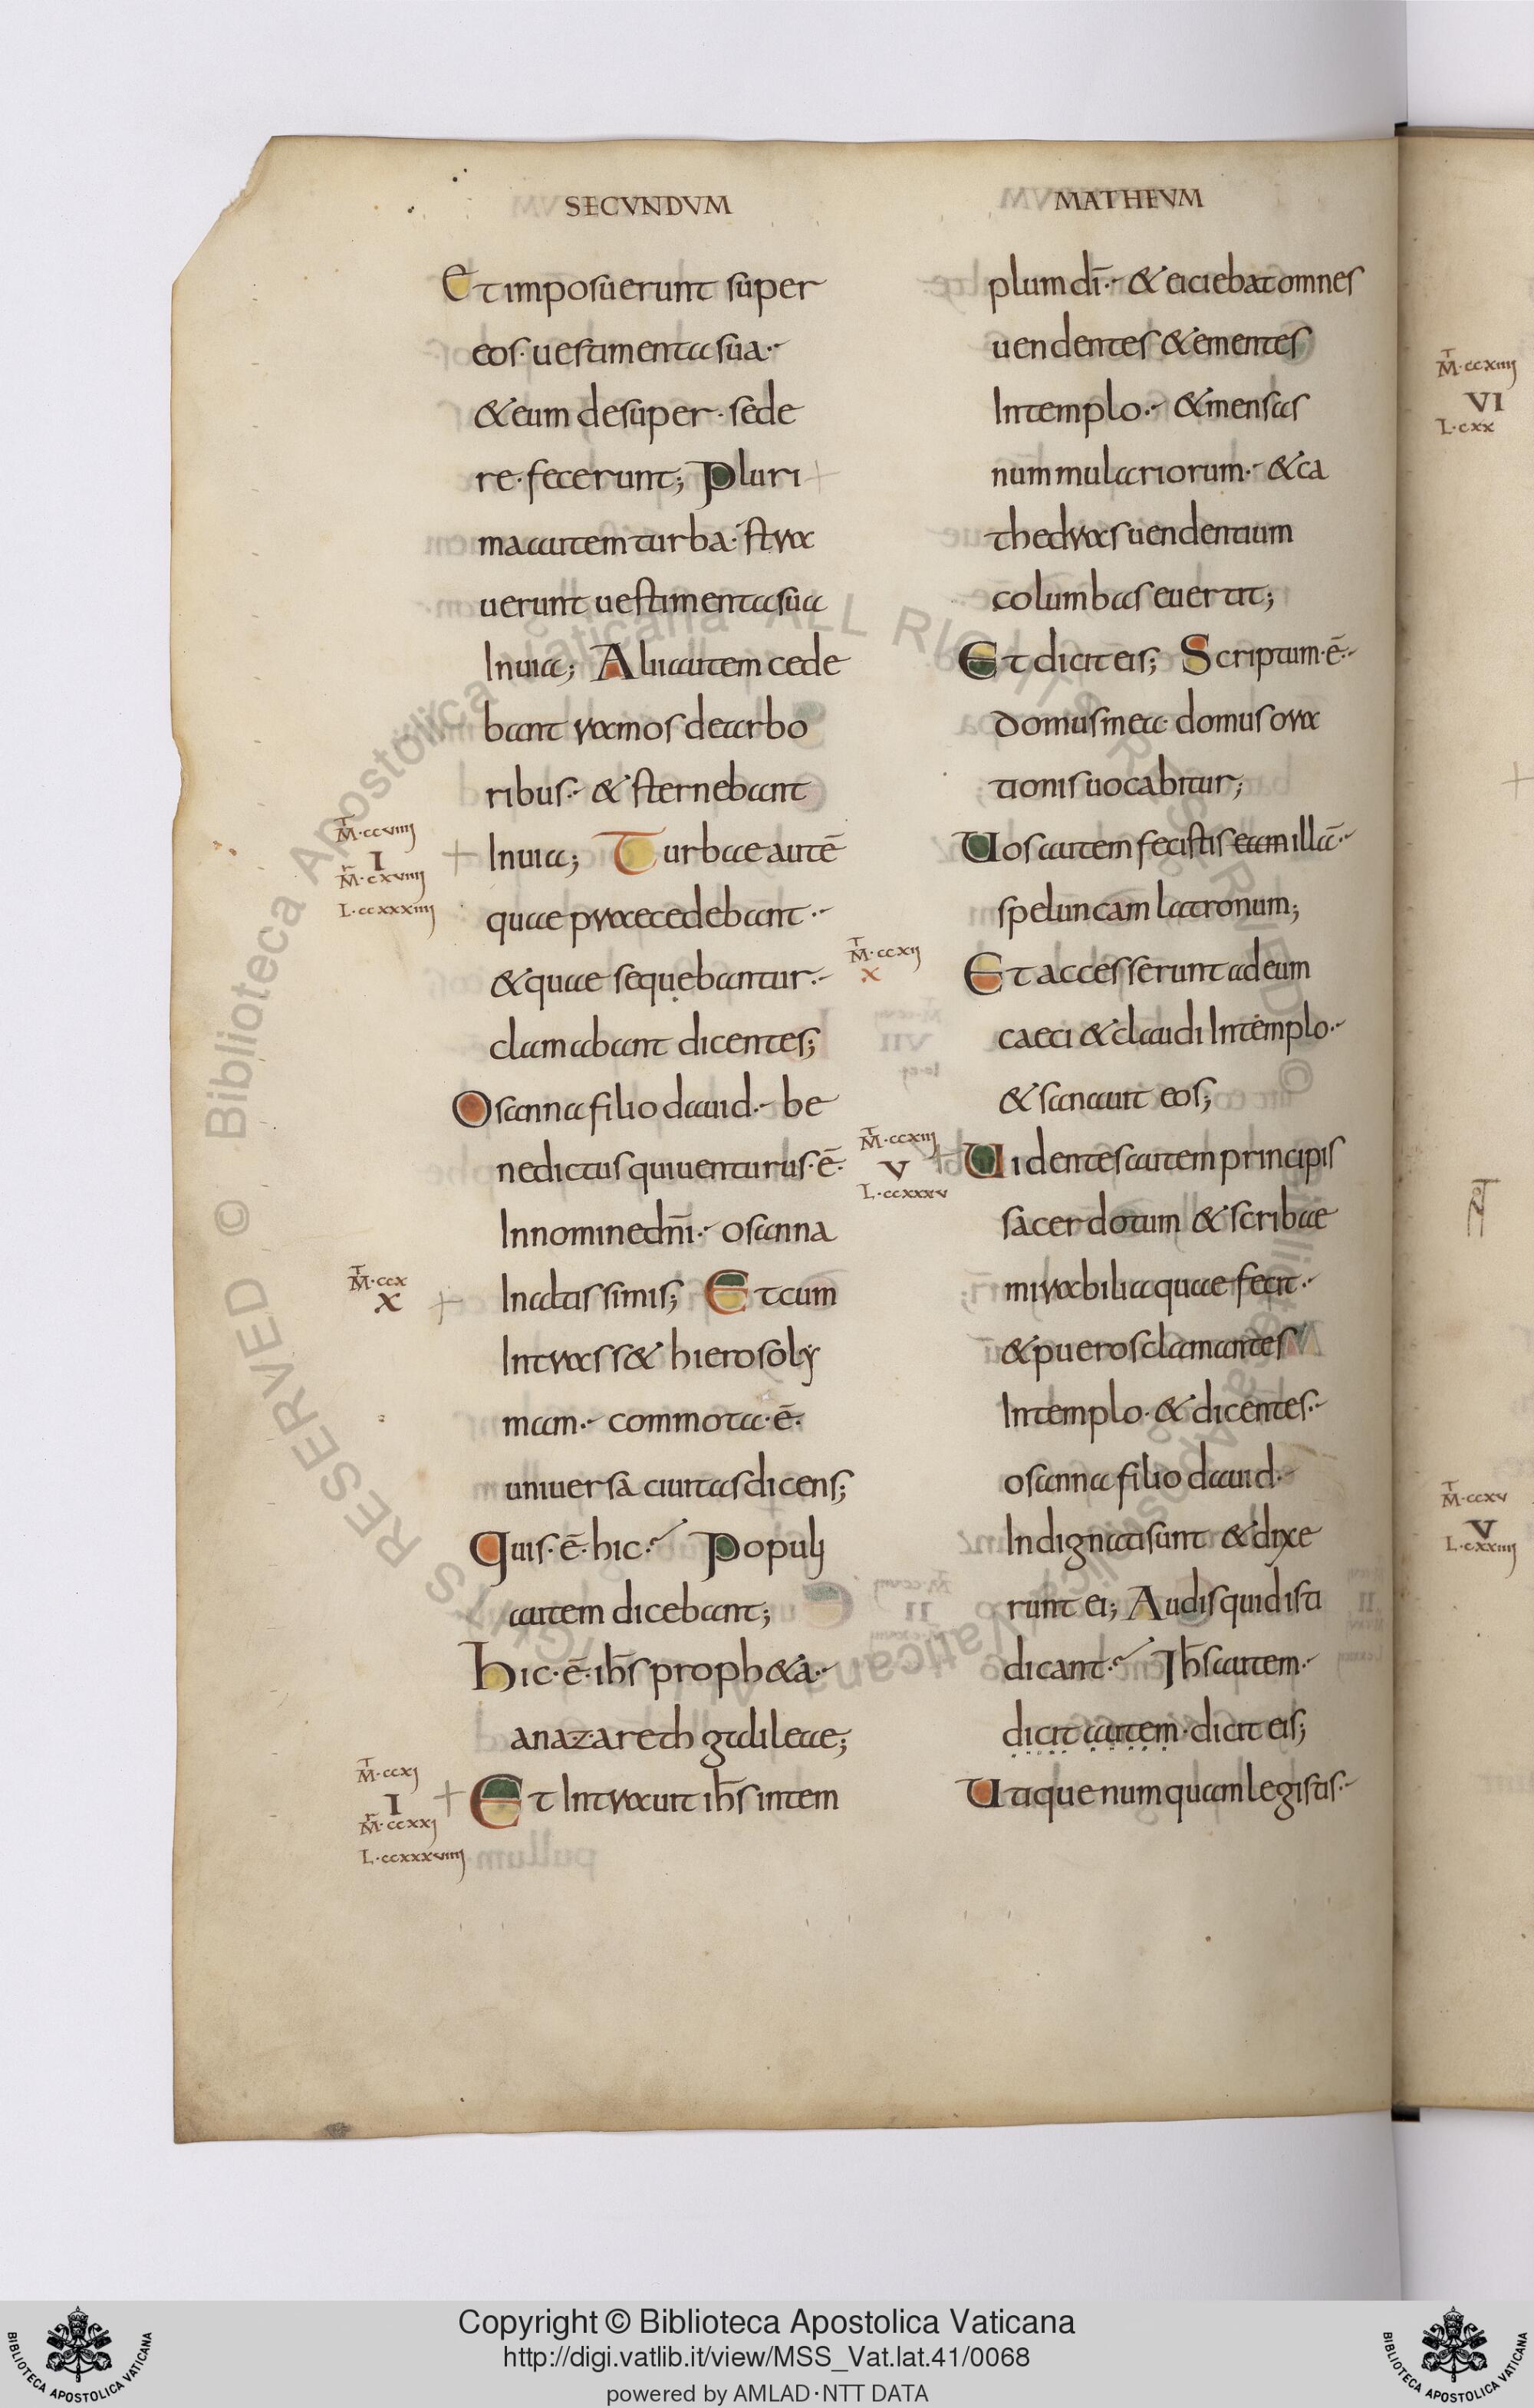 SECVNDVM
Et imposuerunt super
eos· uestimenta sua·-
& eum desuper· sede
re· fecerunt; Pluri
ma autem turba· stra
uerunt uestimenta sua
In uia; Alii autem cede
bant ramos de arbo
ribus·- & sternebant
In uia; Turbae autē
quae praecedebant·-
& quae sequebantur·-
clamabant dicentes;
Osanna filio dauid·- be
nedictus qui uenturus·ē·
In nomine dn̄i·- osanna
In altissimis; Et cum
Intrass& hierosoly
mam·- commota·ē·
uniuersa ciuitas dicens;
Quis·ē·hic·- Populi
autem dicebant;
Hic·ē·ih̄s proph&a·-
a nazareth galileae;
Et Intrauit ih̄s in tem
MATHEVM
plum dī·- & eiciebat omnes
uendentes & ementes
In templo·- & mensas
nummulariorum·- & ca
thedras uendentium
columbas euertit;
Et dicit eis; Scriptum·ē·-
domus mea· domus ora
tionis uocabitur;
Uos autem fecistis eam illā·-
speluncam latronum;
Et accesserunt ad eum
caeci & claudi In templo·-
& sanauit eos;
Uidentes autem principis
sacerdotum & scribae
mirabilia quae fecit·-
& pueros clamantes
In templo· & dicentes·-
osanna filio dauid·-
Indignati sunt & dixe
runt ei; Audis quid isti
dicant·- Ih̄s autem·-
dicit autem· dicit eis;
Utique numquam legistis·-
M·ccviiij
I
M·cxviiij
L·ccxxxiiij
M·ccx
X
M·ccxj
I
M·ccxxj
L·ccxxxviiij
M·ccxij
X
M·ccxiij
V
L·ccxxxv
M·ccxiiij
VI
L·cxx
M·ccxv
V
L·cxxiiij
© Biblioteca Apostolica Vaticana ALL RIGHTS RESERVED
© Biblioteca Apostolica Vaticana ALL RIGHTS RESERVED
BIBLIOTECA APOSTOLICA VATICANA
Copyright © Biblioteca Apostolica Vaticana
http://digi.vatlib.it/view/MSS_Vat.lat.41/0068
powered by AMLAD·NTT DATA
BIBLIOTECA APOSTOLICA VATICANA